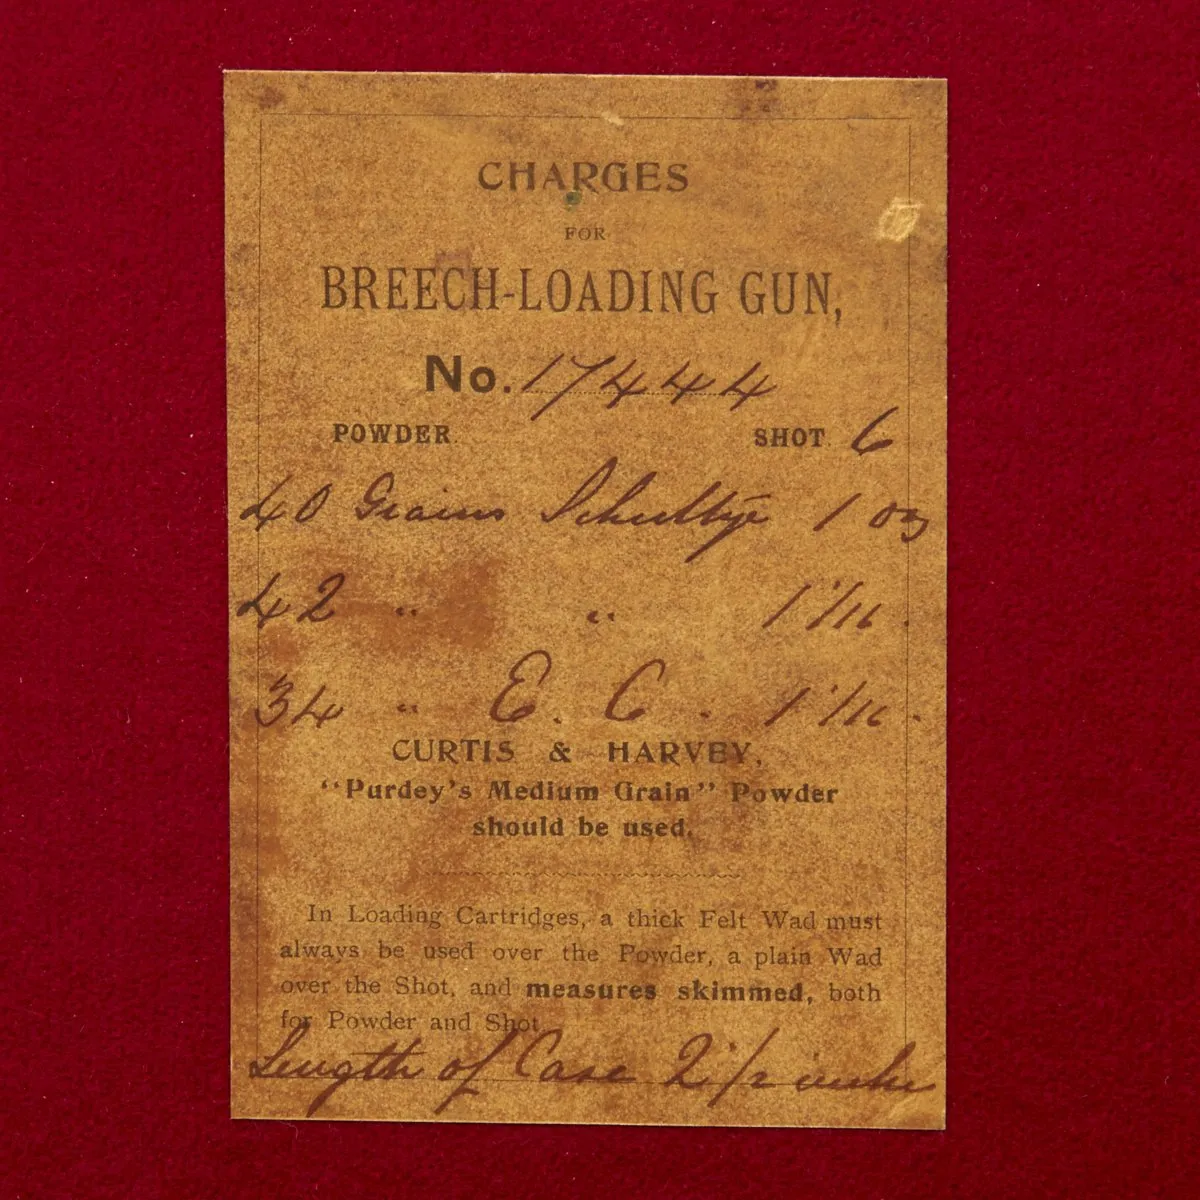 CHARGES
FOR
BREECH-LOADING GUN,
No. 17444
POWDER. SHOT. 6
40 Grains Schultze 1 oz
42 " " 1 1/16.
34 " E. C. 1 1/16.
CURTIS & HARVEY,
"Purdey's Medium Grain" Powder
should be used.
In Loading Cartridges, a thick Felt Wad must
always be used over the Powder, a plain Wad
over the Shot, and measures skimmed, both
for Powder and Shot
Length of Case 2 1/2 inche